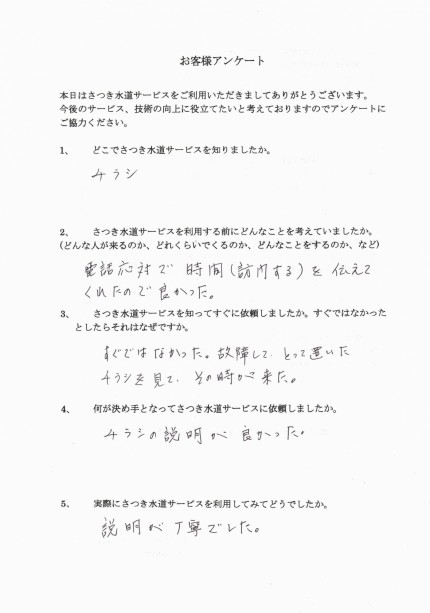 お客様アンケート
本日はさつき水道サービスをご利用いただきましてありがとうございます。
今後のサービス、技術の向上に役立てたいと考えておりますのでアンケートに
ご協力ください。
1、 どこでさつき水道サービスを知りましたか。
チラシ
2、 さつき水道サービスを利用する前にどんなことを考えていましたか。
(どんな人が来るのか、どれくらいでくるのか、どんなことをするのか、など)
電話応対で時間(訪問する)を伝えて
くれたので良かった。
3、 さつき水道サービスを知ってすぐに依頼しましたか。すぐではなかった
としたらそれはなぜですか。
すぐではなかった。故障して、とって置いた
チラシを見て、その時が来た。
4、 何が決め手となってさつき水道サービスに依頼しましたか。
チラシの説明が良かった。
5、 実際にさつき水道サービスを利用してみてどうでしたか。
説明が丁寧でした。